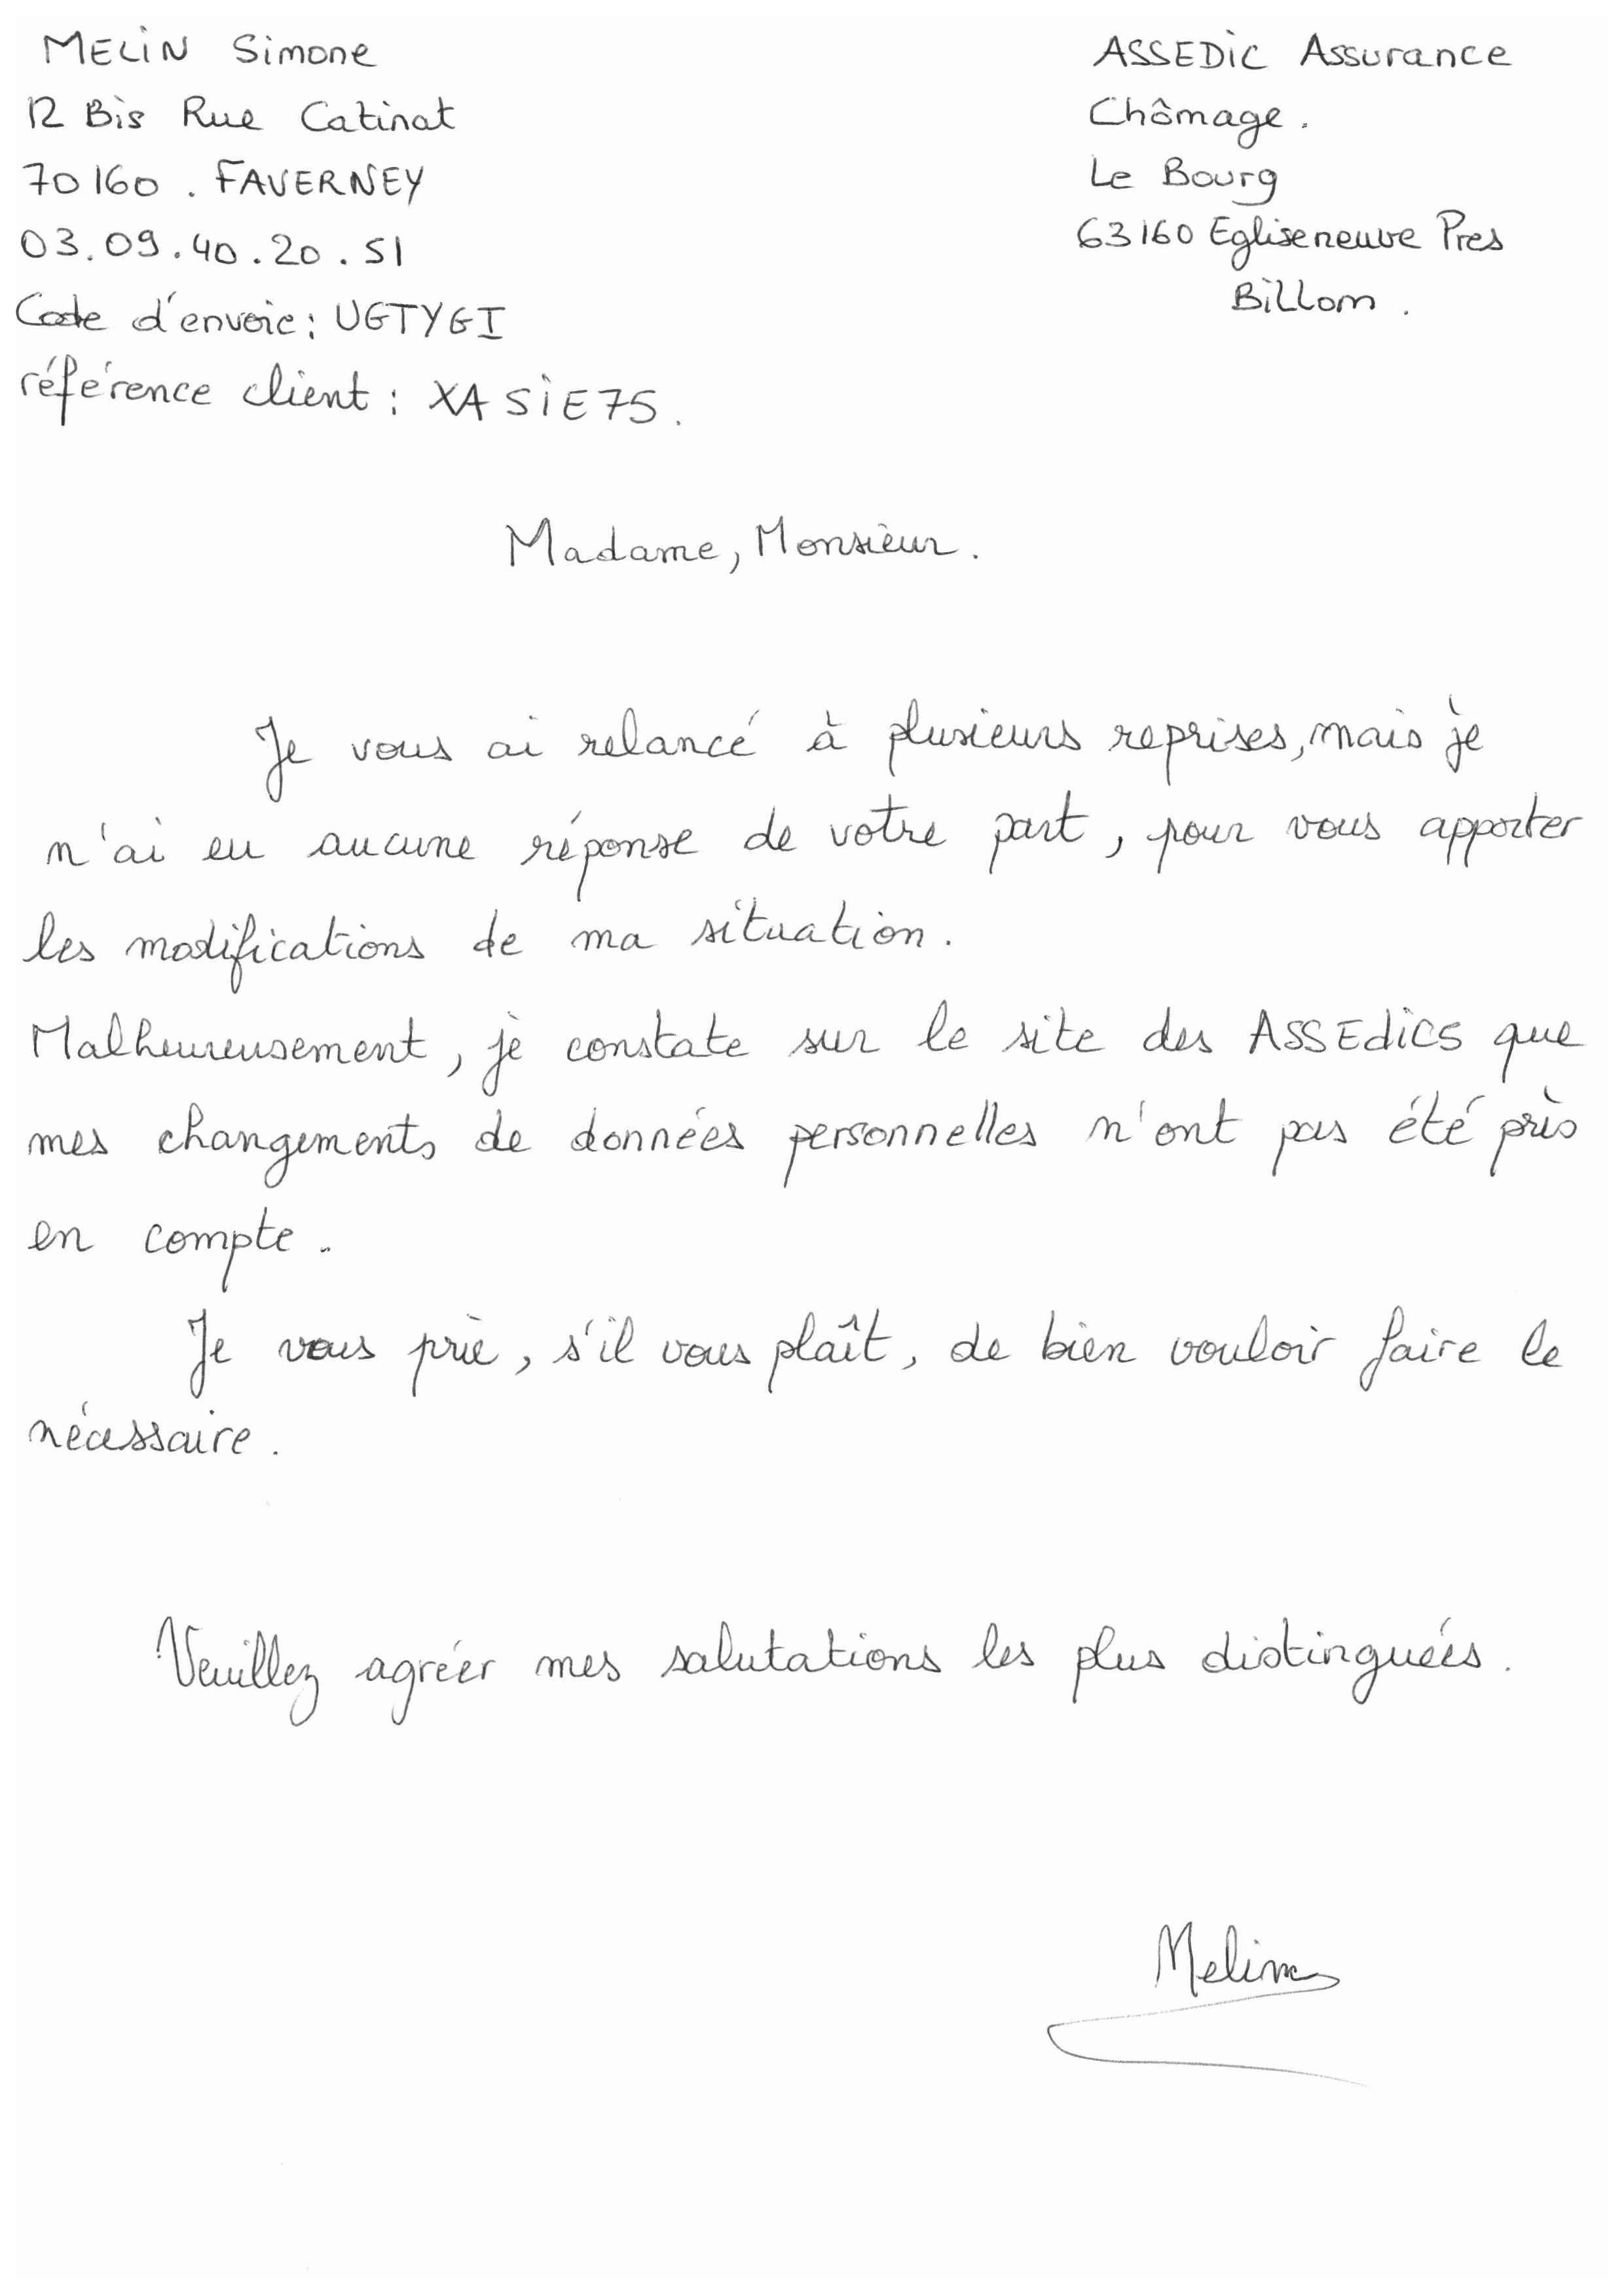 MELIN Simone
12 Bis Rue Catinat
70160 . FAVERNEY
03.09.40.20.51
Code d'envoie : UGTYGI
référence client : XASIE75.
ASSEDIC Assurance
Chômage.
Le Bourg
63160 Egliseneuve Pres
Billom.
Madame, Monsieur.
Je vous ai relancé à plusieurs reprises, mais je
n'ai eu aucune réponse de votre part, pour vous apporter
les modifications de ma situation.
Malheureusement, je constate sur le site des ASSEdics que
mes changements de données personnelles n'ont pas été pris
en compte.
Je vous prie, s'il vous plaît, de bien vouloir faire le
nécessaire.
Veuillez agréer mes salutations les plus distinguées.
Melin